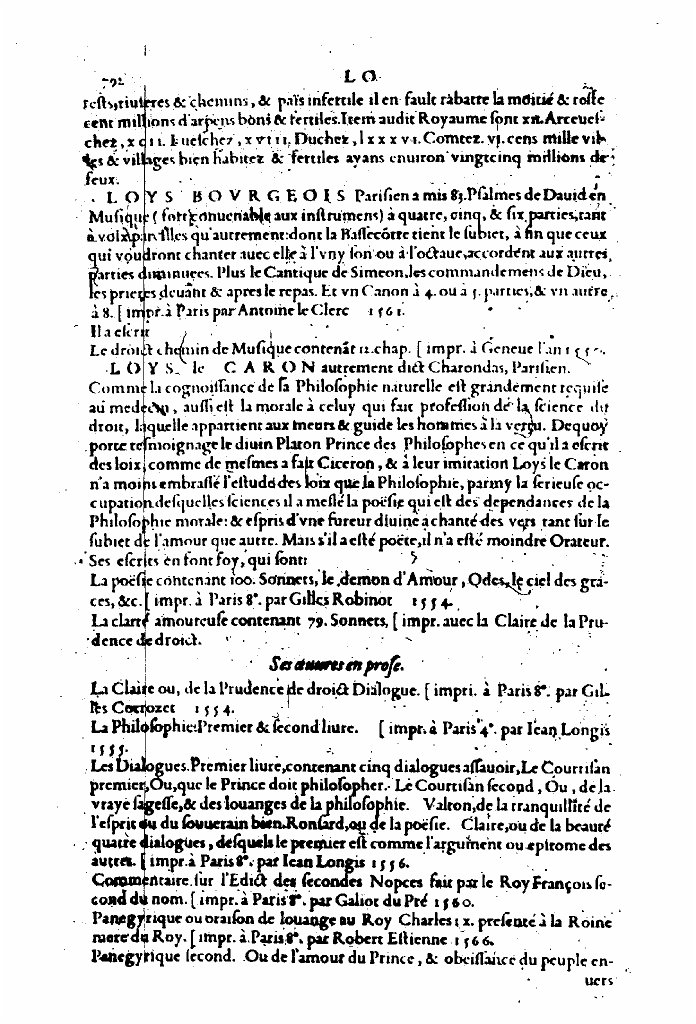 792 L O
rests, riuieres & chemins, & païs infertile il en fault rabatre la moitié & reste
cent millions d'arpens bons & fertiles. Item audit Royaume sont xii. Arceues-
chez, x c i i. Eueschez, x v i i i. Duchez, l x x x v i. Comtez. vj. cens mille vil-
les & villages bien habitez & fertiles ayans enuiron vingtcinq millions de
feux.
L O Y S B O V R G E O I S Parisien a mis 83. Psalmes de Dauid en
Musique (fort conuenable aux instrumens) à quatre, cinq, & six parties, tant
à voix pareilles qu'autrement: dont la Bassecôtre tient le subiet, à fin que ceux
qui voudront chanter auec elle à l'vny son ou à l'octaue, accordent aux autres
parties diminuees. Plus le Cantique de Simeon, les commandemens de Dieu,
les prieres deuât & apres le repas. Et vn Canon à 4. ou à 5. parties, & vn autre
à 8. [impr. à Paris par Antoine le Clerc 1561.
Il a escrit
Le droict chemin de Musique contenāt 12. chap. [ impr. à Geneue l'an
L O Y S. le C A R O N autrement dict Charondas, Parisien.
Comme la cognoissance de la Philosophie naturelle est grandement requise
au medecin, aussi est la morale à celuy qui fait profession de la science du
droit, laquelle appartient aux meurs & guide les hommes à la vertu. Dequoy
porte tesmoignage le diuin Platon Prince des Philosophes en ce qu'il a escrit
des loix, comme de mesmes a fait Ciceron, & à leur imitation Loys le Caron
n'a moins embrassé l'estude des loix que la Philosophie, parmy la serieuse oc-
cupation desquelles sciences il a meslé la poësie qui est des dependances de la
Philosophie morale: & espris d'vne fureur diuine a chanté des vers tant sur le
subiet de l'amour que autre. Mais s'il a esté poëte, il n'a esté moindre Orateur.
Ses escrits en font foy, qui sont:
La poësie contenant 100. Sonnets, le demon d'Amour, Odes, le ciel des gra-
ces, &c. [ impr. à Paris 8°. par Gilles Robinot 1554.
La clarté amoureuse contenant 79. Sonnets, [ impr. auec la Claire de la Pru-
dence de droict.
Ses œuures en prose.
La Claire ou, de la Prudence de droict Dialogue. [ impri. à Paris 8°. par Gil-
les Corrozet 1554.
La Philosophie: Premier & second liure. [ impr. à Paris 4°. par Iean Longis
1555.
Les Dialogues. Premier liure, contenant cinq dialogues assauoir, Le Courtisan
premier, Ou, que le Prince doit philosopher. Le Courtisan second, Ou, de la
vraye sagesse, & des louanges de la philosophie. Valton, de la tranquillité de
l'esprit ou du souuerain bien. Ronsard, ou de la poësie. Claire, ou de la beauté
quatre dialogues, desquels le premier est comme l'argument ou epitome des
autres. [ impr. à Paris 8°. par Iean Longis 1556.
Commentaire sur l'Edict des secondes Nopces fait par le Roy François se-
cond du nom. [ impr. à Paris 8°. par Galiot du Pré 1560.
Panegyrique ou oraison de louange au Roy Charles ix. presenté à la Roine
mere du Roy. [ impr. à Paris 8°. par Robert Estienne 1566.
Panegyrique second. Ou de l'amour du Prince, & obeissance du peuple en-
uers